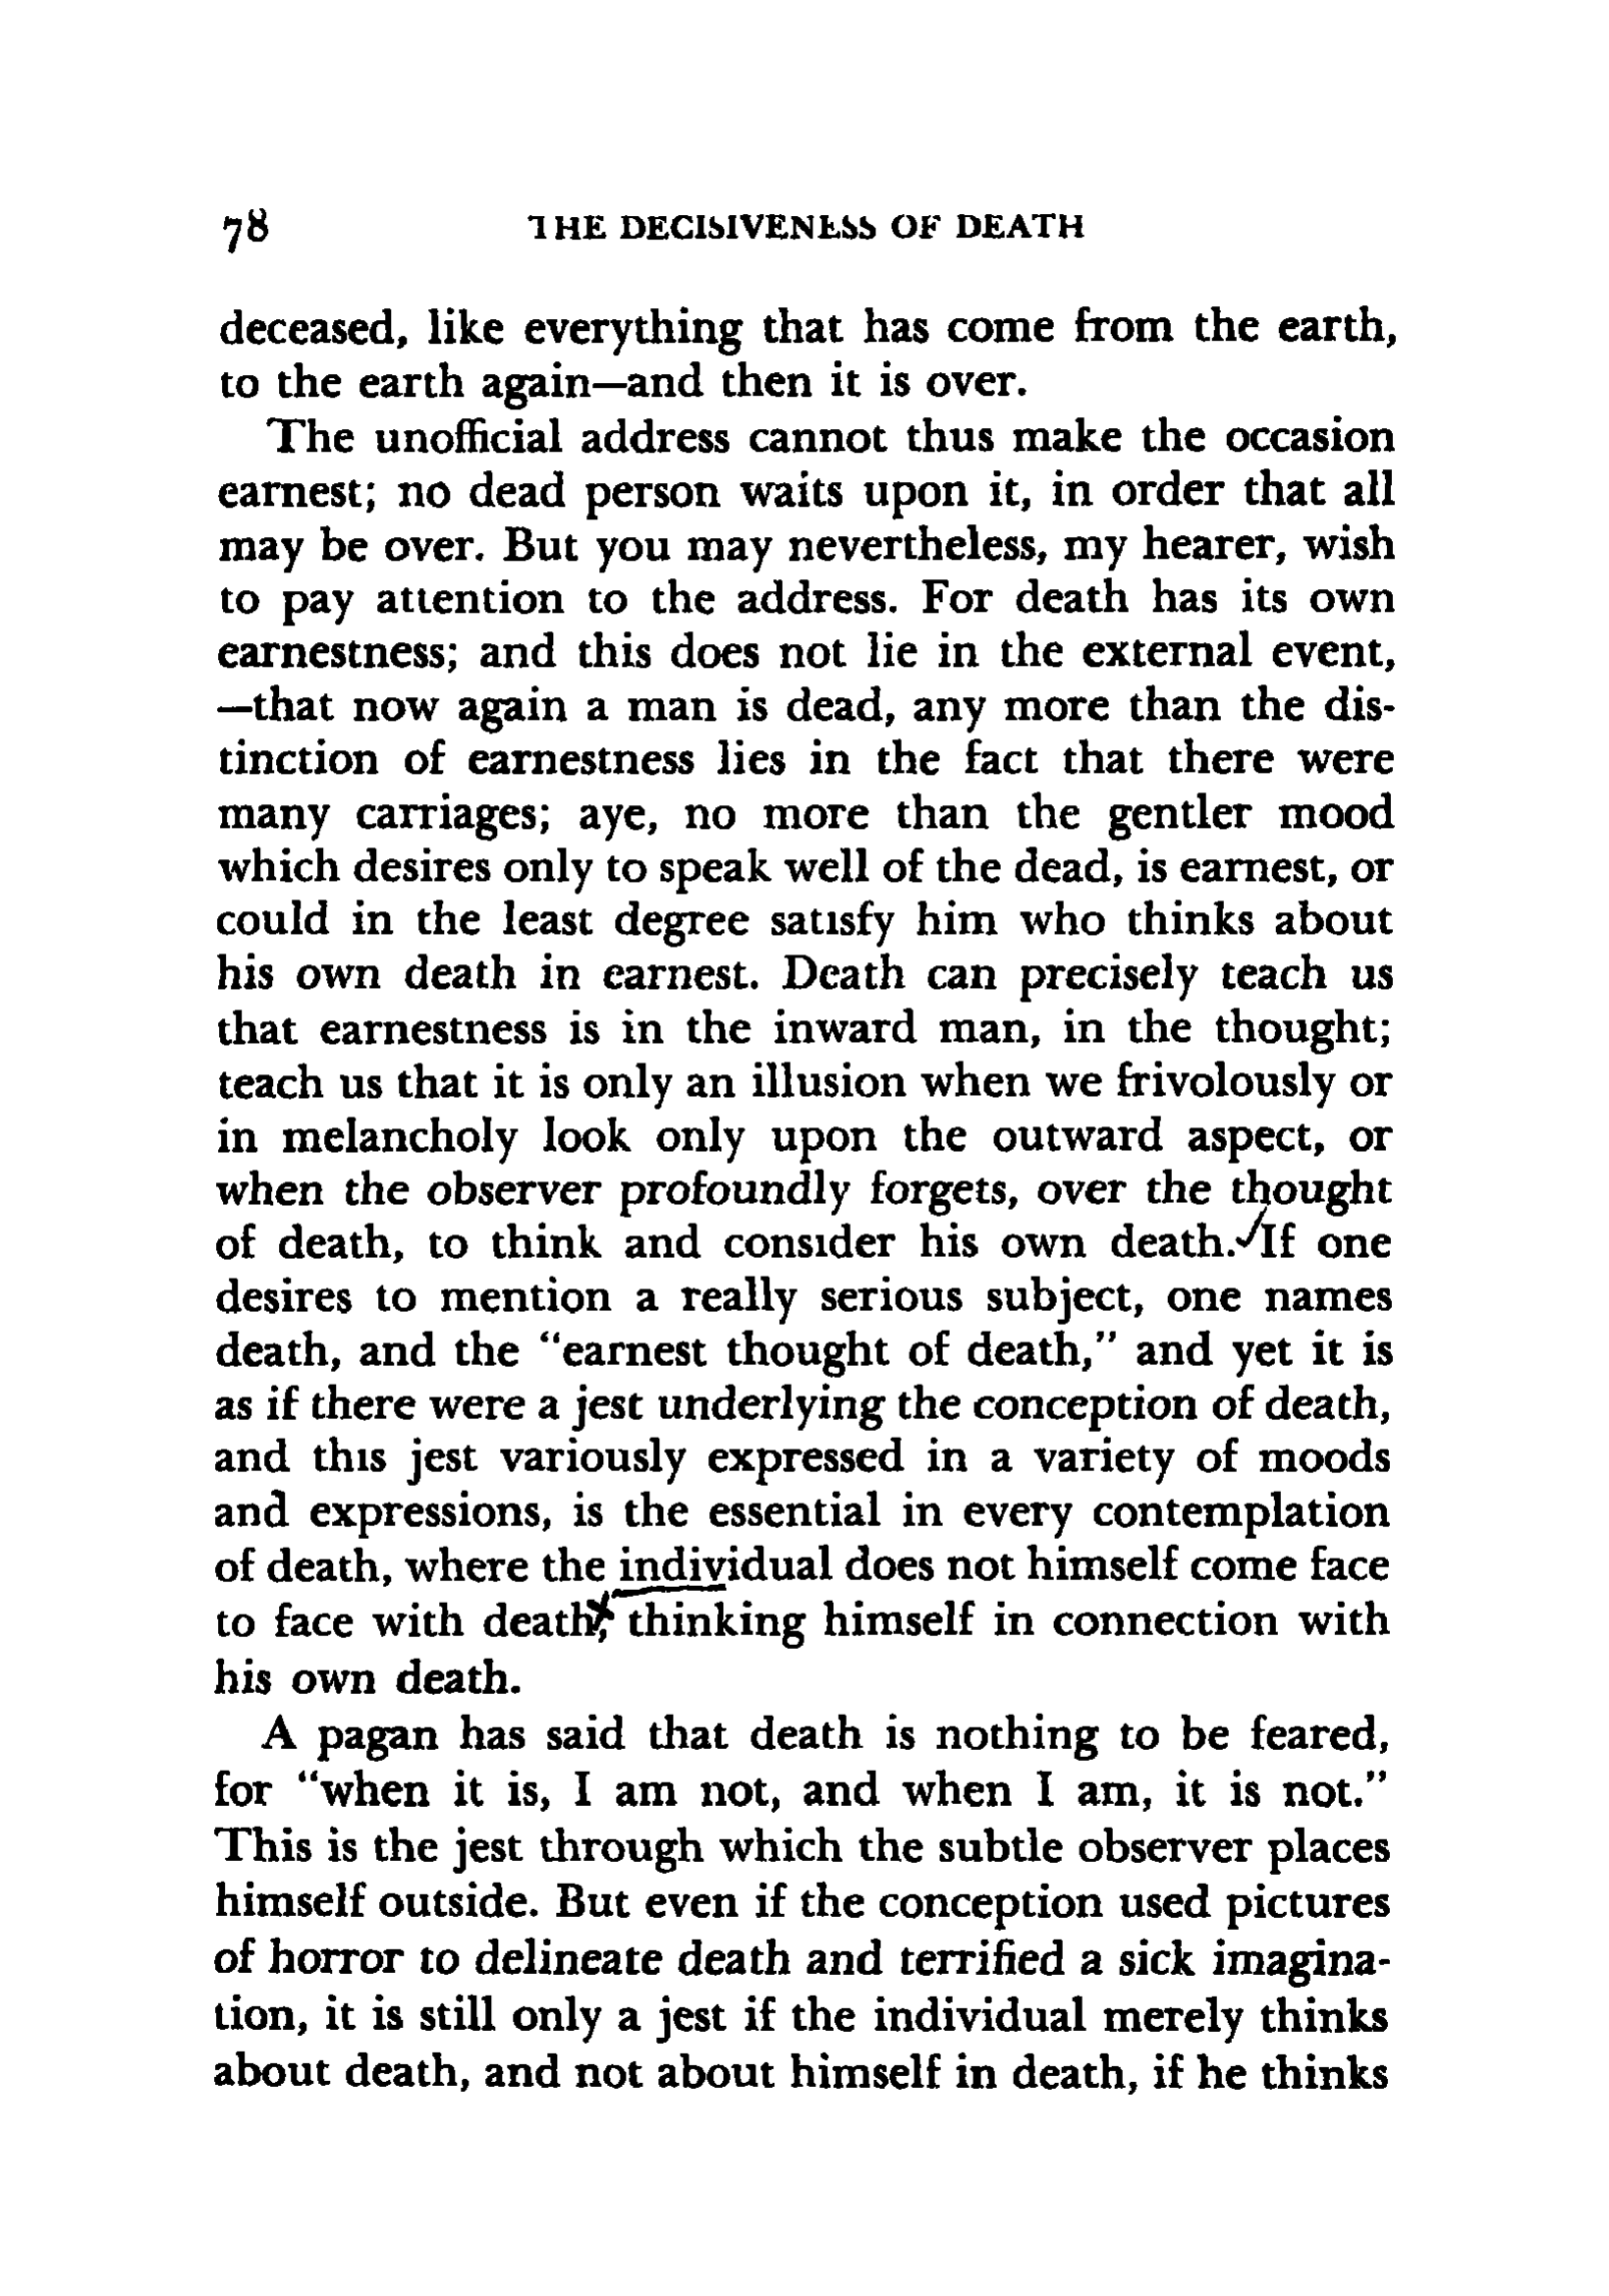 78 THE DECISIVENESS OF DEATH
deceased, like everything that has come from the earth,
to the earth again—and then it is over.
The unofficial address cannot thus make the occasion
earnest; no dead person waits upon it, in order that all
may be over. But you may nevertheless, my hearer, wish
to pay attention to the address. For death has its own
earnestness; and this does not lie in the external event,
—that now again a man is dead, any more than the dis-
tinction of earnestness lies in the fact that there were
many carriages; aye, no more than the gentler mood
which desires only to speak well of the dead, is earnest, or
could in the least degree satisfy him who thinks about
his own death in earnest. Death can precisely teach us
that earnestness is in the inward man, in the thought;
teach us that it is only an illusion when we frivolously or
in melancholy look only upon the outward aspect, or
when the observer profoundly forgets, over the thought
of death, to think and consider his own death. If one
desires to mention a really serious subject, one names
death, and the "earnest thought of death," and yet it is
as if there were a jest underlying the conception of death,
and this jest variously expressed in a variety of moods
and expressions, is the essential in every contemplation
of death, where the individual does not himself come face
to face with death, thinking himself in connection with
his own death.
A pagan has said that death is nothing to be feared,
for "when it is, I am not, and when I am, it is not."
This is the jest through which the subtle observer places
himself outside. But even if the conception used pictures
of horror to delineate death and terrified a sick imagina-
tion, it is still only a jest if the individual merely thinks
about death, and not about himself in death, if he thinks